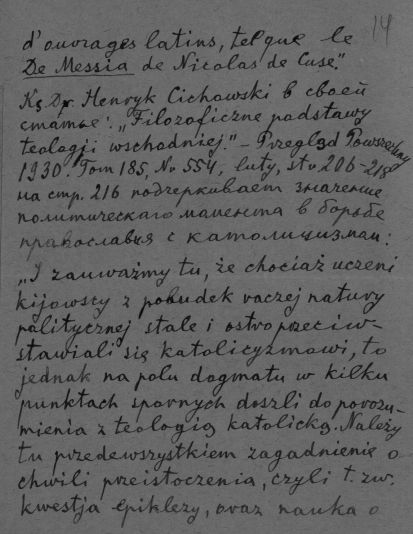 14
d'ouvrages latins, tel que le
De Messia de Nicolas de Cuse."
Ks. Dr. Henryk Cichowski в своей
статье: „Filozoficzne podstawy
teologji wschodniej." – Przegląd Powszechny
1930. Tom 185, Nr 554, luty, str 206-218
на стр. 216 подчеркивает значение
политическаго момента в борьбе
православья с католицизмом:
„I zauważmy tu, że chociaż uczeni
kijowscy z pobudek raczej natury
politycznej stale i ostro przeciw-
stawiali się katolicyzmowi, to
jednak na polu dogmatu w kilku
punktach spornych doszli do porozu-
mienia z teologią katolicką. Należy
tu przedewszystkiem zagadnienie o
chwili przeistoczenia, czyli t. zw.
kwestja epiklezy, oraz nauka o